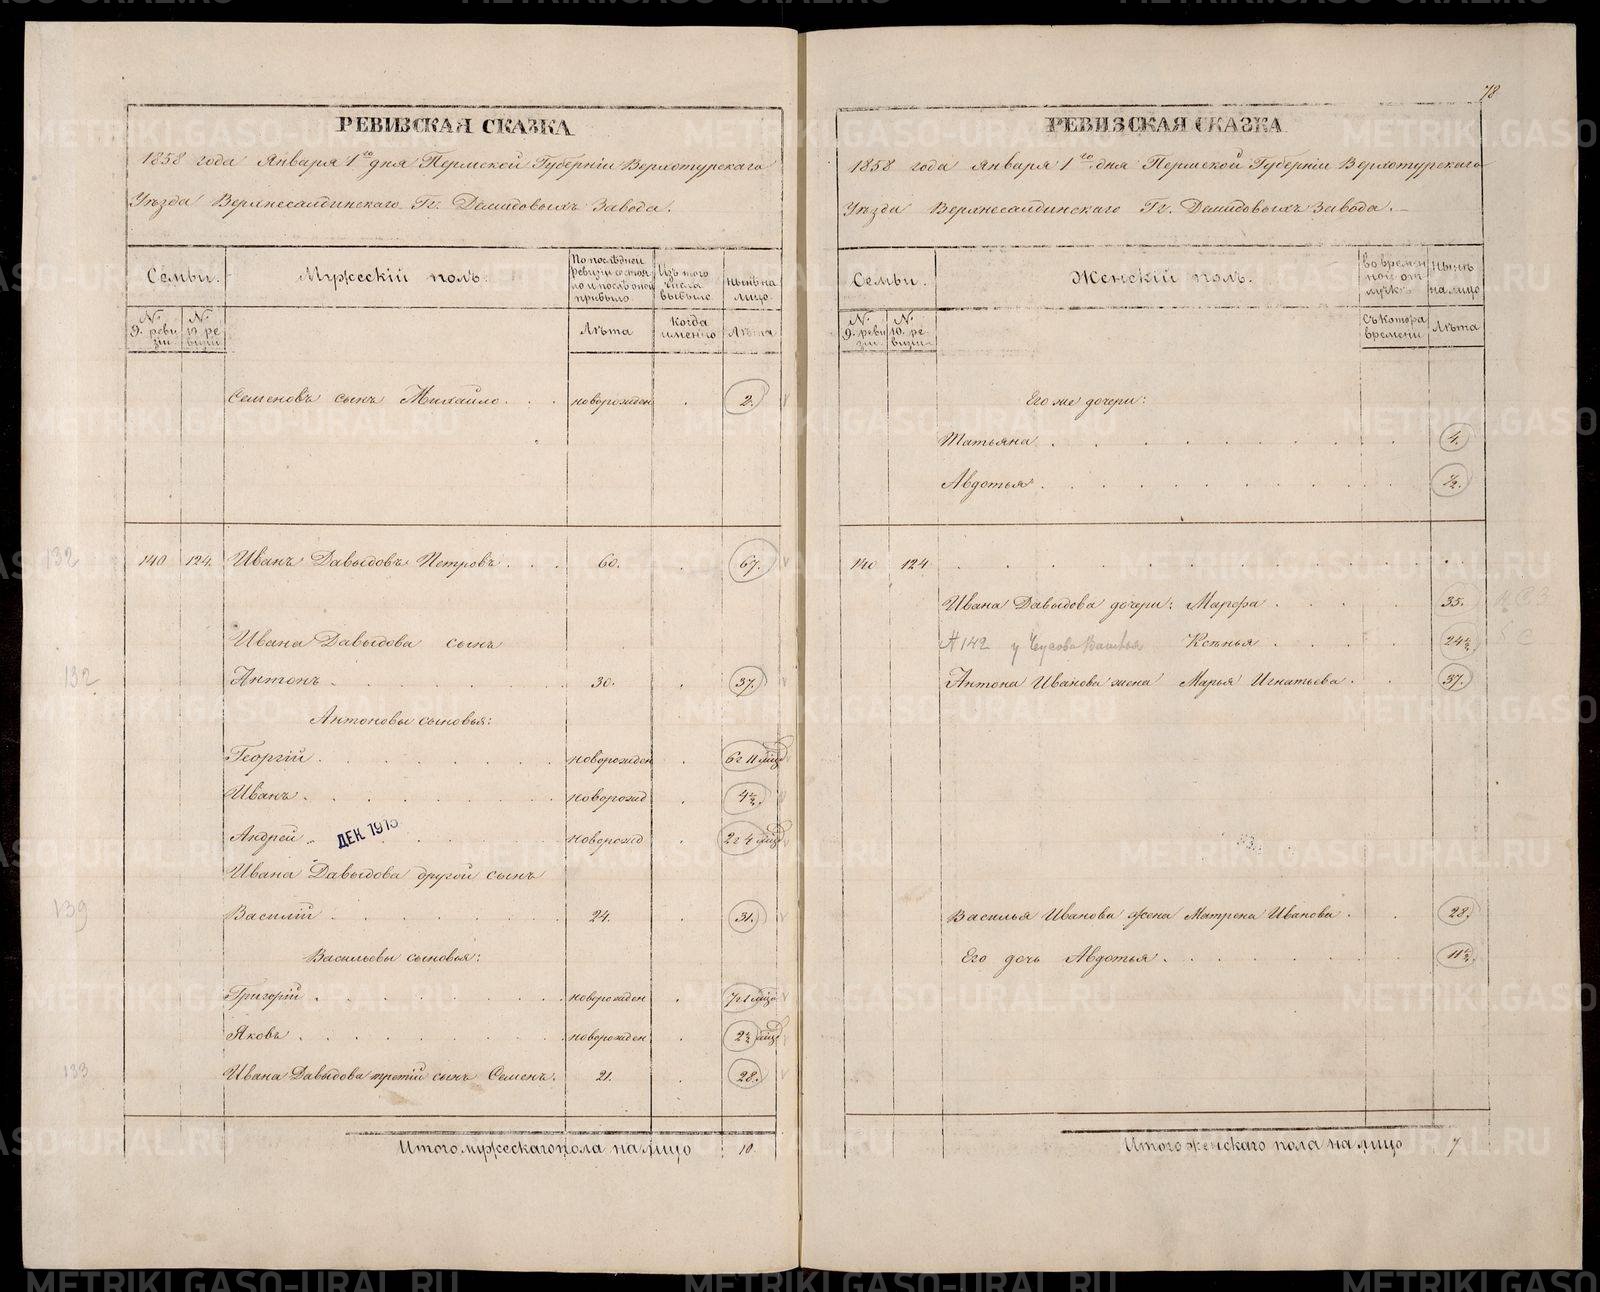 РЕВИЗСКАЯ СКАЗКА
1858 года Января 1го дня Пермской Губерніи Верхотурскаго
Уѣзда Верхнесалдинскаго Гг. Демидовыхъ Завода.
Семьи.
Мужескій полъ.
По послѣдней ревизіи состояло и послѣ оной прибыло
Изъ того числа выбыло
Нынѣ на лицо.
№ 9. ревизіи
№ 10. ревизіи
Лѣта
Когда именно
Лѣта
Семеновъ сынъ Михайло новорожден 2.
132 140 124. Иванъ Давыдовъ Петровъ 60. 67.
Ивана Давыдова сынъ
132 Антонъ 30. 37.
Антоновы сыновья:
Георгій новорожден 6 г 11 мѣс
Иванъ новорожд 4½.
Андрей новорожд 2 г 4 мѣс
ДЕК 1975
Ивана Давыдова другой сынъ
139 Василій 24. 31.
Васильевы сыновья:
Григорій новорожден 7 г 1 мѣс
Яковъ новорожден 2½ мѣс
133 Ивана Давыдова третій сынъ Семенъ. 21. 28.
Итого мужескаго пола на лицо 10.
78
РЕВИЗСКАЯ СКАЗКА
1858 года Января 1го дня Пермской Губерніи Верхотурскаго
Уѣзда Верхнесалдинскаго Гг. Демидовыхъ Завода.
Семьи.
Женскій полъ.
Во временной отлучкѣ
Нынѣ на лицо
№ 9. ревизіи
№ 10. ревизіи
Съ котора времени
Лѣта
Его же дочери:
Татьяна 4.
Авдотья ½.
140 124
Ивана Давыдова дочери: Марфа 35.
№ 142 у Ксенья 24½
Антона Иванова жена Марья Игнатьева 37.
Василья Иванова жена Матрена Иванова 28.
Его дочь Авдотья 11½.
Итого женскаго пола на лицо 7
METRIKI.GASO-URAL.RU